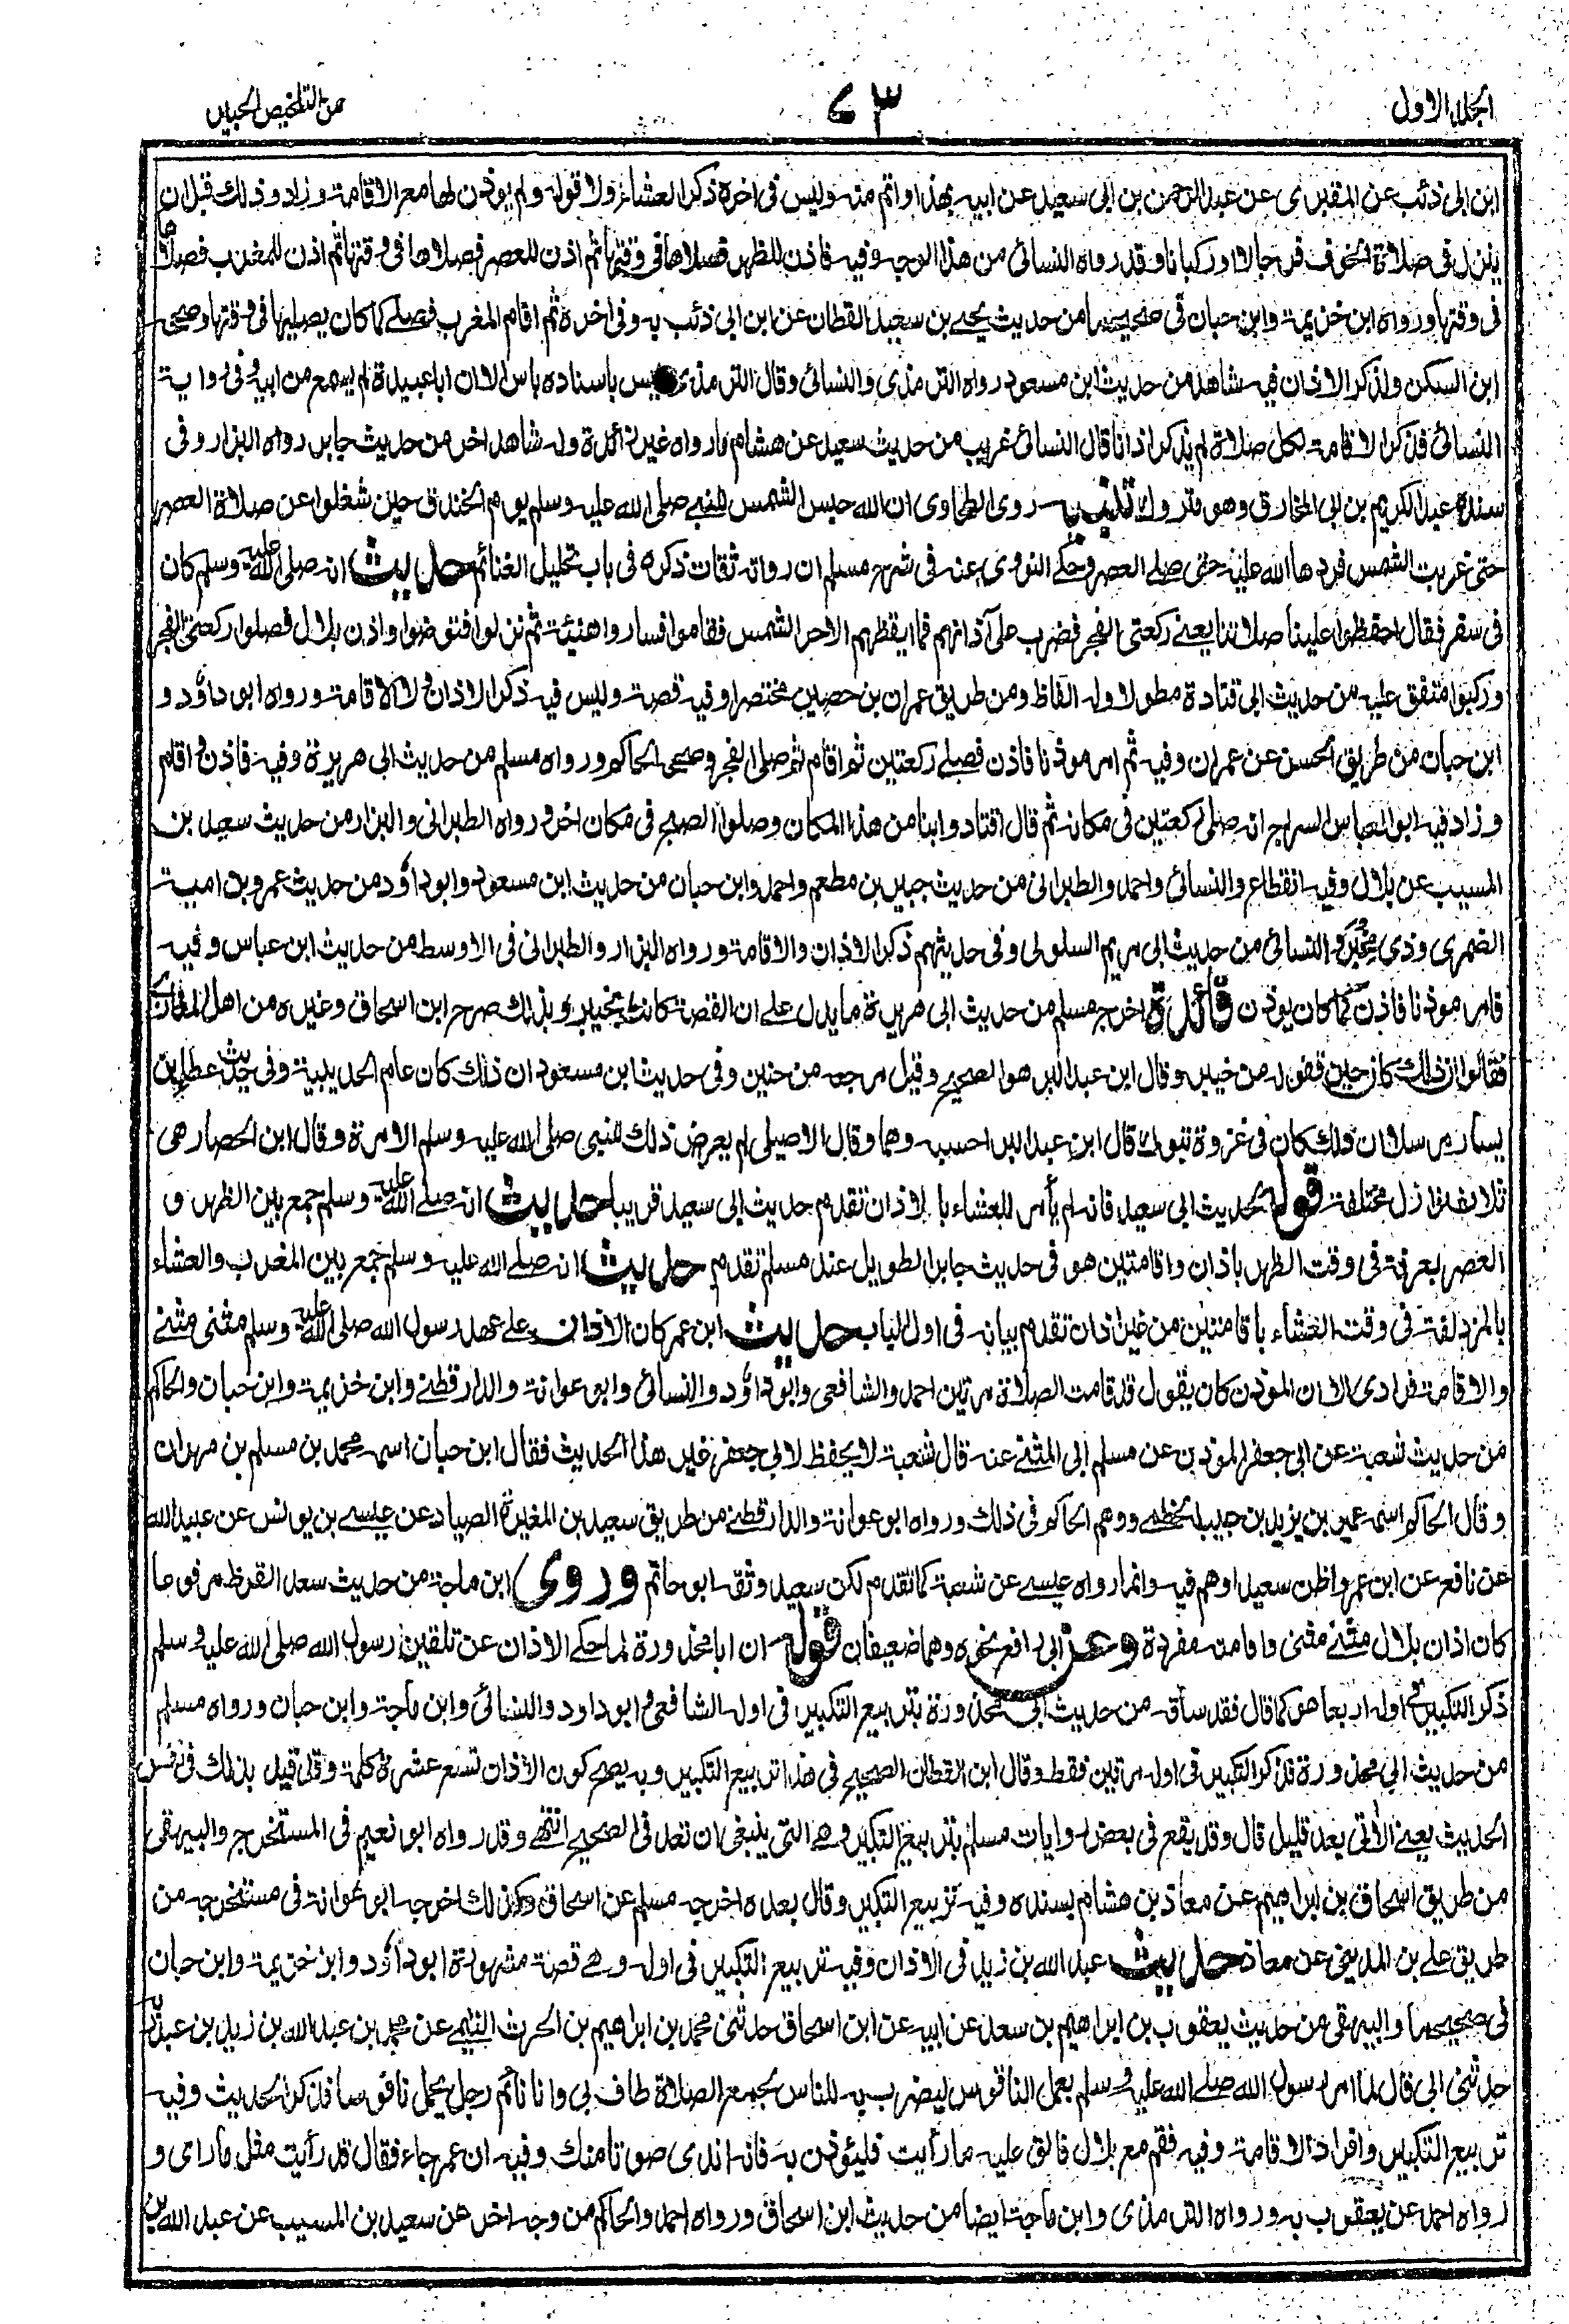 الجلد الاول
٧٣
من التلخيص الحبير
ابن ابى ذئب عن المقبرى عن عبد الرحمن بن ابى سعيد عن ابيه بهذا واتم منه وليس فى اخره ذكر العشاء ولا قوله ولم يوذن لها مع الاقامة وزاد وذلك قبل ان
ينزل فى صلاة الخوف فرجالا او ركبانا وقد رواه النسائى من هذا الوجه وفيه فاذن للظهر فصلاها فى وقتها ثم اذن للعصر فصلاها فى وقتها ثم اذن للمغرب فصلاها
فى وقتها ورواه ابن خزيمة وابن حبان فى صحيحيهما من حديث يحيى بن سعيد القطان عن ابن ابى ذئب به وفى اخره ثم اقام المغرب فصلى كما كان يصليها فى وقتها وصححه
ابن السكن ولذكر الاذان فيه شاهد من حديث ابن مسعود رواه الترمذى والنسائى وقال الترمذى ليس باسناده باس الا ان ابا عبيدة لم يسمع من ابيه وفى رواية
النسائى فذكر الاقامة لكل صلاة لم يذكر اذانا قال النسائى غريب من حديث سعيد عن هشام ما رواه غير زائدة وله شاهد اخر من حديث جابر رواه البزار وفى
سنده عبد الكريم بن ابى المخارق وهو متروك تنبيه روى الطحاوى ان الله حبس الشمس للنبى صلى الله عليه وسلم يوم الخندق حين شغلوا عن صلاة العصر
حتى غربت الشمس فردها الله عليه حتى صلى العصر وحكى النووى عنه فى شرح مسلم ان رواته ثقات ذكره فى باب تحليل الغنائم حديث انه صلى الله عليه وسلم كان
فى سفر فقال احفظوا علينا صلاتنا يعنى ركعتى الفجر فضرب على آذانهم فما ايقظهم الا حر الشمس فقاموا فساروا هنيئة ثم نزلوا فتوضوا واذن بلال فصلوا ركعتى الفجر
وركبوا متفق عليه من حديث ابى قتادة مطولا وله الفاظ ومن طريق عمران بن حصين مختصرا وفيه قصة وليس فيه ذكر الاذان ولا الاقامة ورواه ابو داؤد و
ابن حبان من طريق الحسن عن عمران وفيه ثم امر موذنا فاذن فصلى ركعتين ثم اقام ثم صلى الفجر وصححه الحاكم ورواه مسلم من حديث ابى هريرة وفيه فاذن واقام
وزاد فيه ابو العباس السراج انه صلى ركعتين فى مكانه ثم قال اقتادوا بنا من هذا المكان وصلوا الصبح فى مكان اخر ورواه الطبرانى والبزار من حديث سعيد بن
المسيب عن بلال وفيه انقطاع والنسائى واحمد والطبرانى من حديث جبير بن مطعم واحمد وابن حبان من حديث ابن مسعود وابو داؤد من حديث عمرو بن امية
الضمرى وذى مخبر والنسائى من حديث ابى مريم السلولى وفى حديثهم ذكر الاذان والاقامة ورواه البزار والطبرانى فى الاوسط من حديث ابن عباس وفيه
فامر موذنا فاذن كما كان يوذن فائدة اخرج مسلم من حديث ابى هريرة ما يدل على ان القصة كانت بخيبر وبذلك صرح ابن اسحاق وغيره من اهل المغازى
فقالوا ان ذلك كان حين قفوله من خيبر وقال ابن عبد البر هو الصحيح وقيل مرجعه من حنين وفى حديث ابن مسعود ان ذلك كان عام الحديبية وفى حديث عطاء بن
يسار مرسلا ان ذلك كان فى غزوة تبوك قال ابن عبد البر احسبه وهما وقال الاصيلى لم يعرض ذلك للنبى صلى الله عليه وسلم الا مرة وقال ابن الحصار هى
ثلاث نوازل مختلفة قوله لحديث ابى سعيد فانه لم يأمر للعشاء بالاذان تقدم حديث ابى سعيد قريبا حديث انه صلى الله عليه وسلم جمع بين الظهر و
العصر بعرفة فى وقت الظهر باذان واقامتين هو فى حديث جابر الطويل عند مسلم تقدم حديث انه صلى الله عليه وسلم جمع بين المغرب والعشاء
بالمزدلفة فى وقت العشاء باقامتين من غير اذان تقدم بيانه فى اول الباب حديث ابن عمر كان الاذان على عهد رسول الله صلى الله عليه وسلم مثنى مثنى
والاقامة فرادى الا ان الموذن كان يقول قد قامت الصلاة مرتين احمد والشافعى وابو داؤد والنسائى وابو عوانة والدارقطنى وابن خزيمة وابن حبان والحاكم
من حديث شعبة عن ابى جعفر الموذن عن مسلم ابى المثنى عنه قال شعبة لا يحفظ لابى جعفر غير هذا الحديث فقال ابن حبان اسمه محمد بن مسلم بن مهران
وقال الحاكم اسمه عمير بن يزيد بن حبيب الخطمى ووهم الحاكم فى ذلك ورواه ابو عوانة والدارقطنى من طريق سعيد بن المغيرة الصياد عن عيسى بن يونس عن عبيد الله
عن نافع عن ابن عمر واظن سعيدا وهم فيه وانما رواه عيسى عن شعبة كما تقدم لكن سعيد وثقه ابو حاتم وروى ابن ماجة من حديث سعد القرظ مرفوعا
كان اذان بلال مثنى مثنى واقامته مفردة وعن ابى رافع نحوه وهما ضعيفان قوله ان ابا محذورة لما حكى الاذان عن تلقين رسول الله صلى الله عليه وسلم
ذكر التكبير فى اوله اربعا هو كما قال فقد ساقه من حديث ابى محذورة بتربيع التكبير فى اوله الشافعى وابو داود والنسائى وابن ماجة وابن حبان ورواه مسلم
من حديث ابى محذورة فذكر التكبير فى اوله مرتين فقط وقال ابن القطان الصحيح فى هذا تربيع التكبير وبه يصح كون الاذان تسع عشرة كلمة وقد قيل بذلك فى نفس
الحديث يعنى الآتى بعد قليل قال وقد يقع فى بعض روايات مسلم بتربيع التكبير وهى التى ينبغى ان تعد فى الصحيح انتهى وقد رواه ابو نعيم فى المستخرج والبيهقى
من طريق اسحاق بن ابراهيم عن معاذ بن هشام بسنده وفيه تربيع التكبير وقال بعده اخرجه مسلم عن اسحاق وكذلك اخرجه ابو عوانة فى مستخرجه من
طريق على بن المدينى عن معاذ حديث عبد الله بن زيد فى الاذان وفيه تربيع التكبير فى اوله وهى قصة مشهورة ابو داؤد وابن خزيمة وابن حبان
فى صحيحيهما والبيهقى من حديث يعقوب بن ابراهيم بن سعد عن ابيه عن ابن اسحاق حدثنى محمد بن ابراهيم بن الحرث التيمى عن محمد بن عبد الله بن زيد بن عبد ربه
حدثنى ابى قال لما امر رسول الله صلى الله عليه وسلم بعمل الناقوس ليضرب به للناس لجمع الصلاة طاف بى وانا نائم رجل يحمل ناقوسا فذكر الحديث وفيه
تربيع التكبير وافراد الاقامة وفيه فقم مع بلال فالق عليه ما رأيت فليؤذن به فانه اندى صوتا منك وفيه ان عمر جاء فقال قد رأيت مثل ما راى و
رواه احمد عن يعقوب به ورواه الترمذى وابن ماجة ايضا من حديث ابن اسحاق ورواه احمد والحاكم من وجه اخر عن سعيد بن المسيب عن عبد الله بن